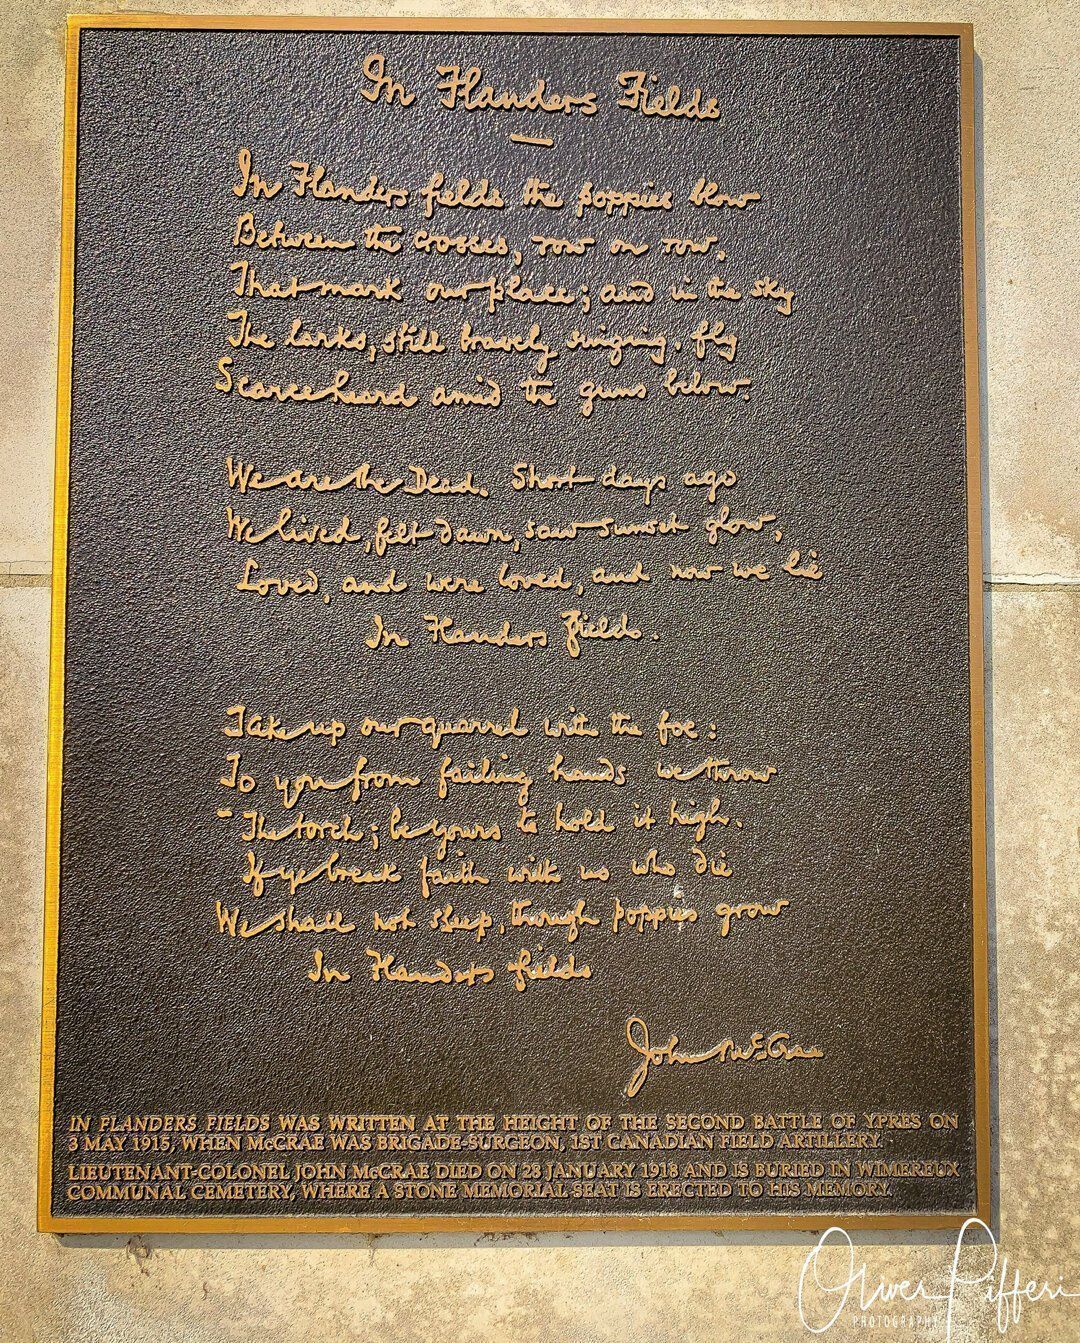 In Flanders Fields
—
In Flanders fields the poppies blow
Between the crosses, row on row,
That mark our place; and in the sky
The larks, still bravely singing, fly
Scarce heard amid the guns below.
We are the Dead. Short days ago
We lived, felt dawn, saw sunset glow,
Loved, and were loved, and now we lie
In Flanders Fields.
Take up our quarrel with the foe:
To you from failing hands we throw
The torch; be yours to hold it high.
If ye break faith with us who die
We shall not sleep, though poppies grow
In Flanders fields
John McCrae
IN FLANDERS FIELDS WAS WRITTEN AT THE HEIGHT OF THE SECOND BATTLE OF YPRES ON
3 MAY 1915, WHEN McCRAE WAS BRIGADE-SURGEON, 1ST CANADIAN FIELD ARTILLERY.
LIEUTENANT-COLONEL JOHN McCRAE DIED ON 28 JANUARY 1918 AND IS BURIED IN WIMEREUX
COMMUNAL CEMETERY, WHERE A STONE MEMORIAL SEAT IS ERECTED TO HIS MEMORY.
Oliver Pifferi
PHOTOGRAPHY